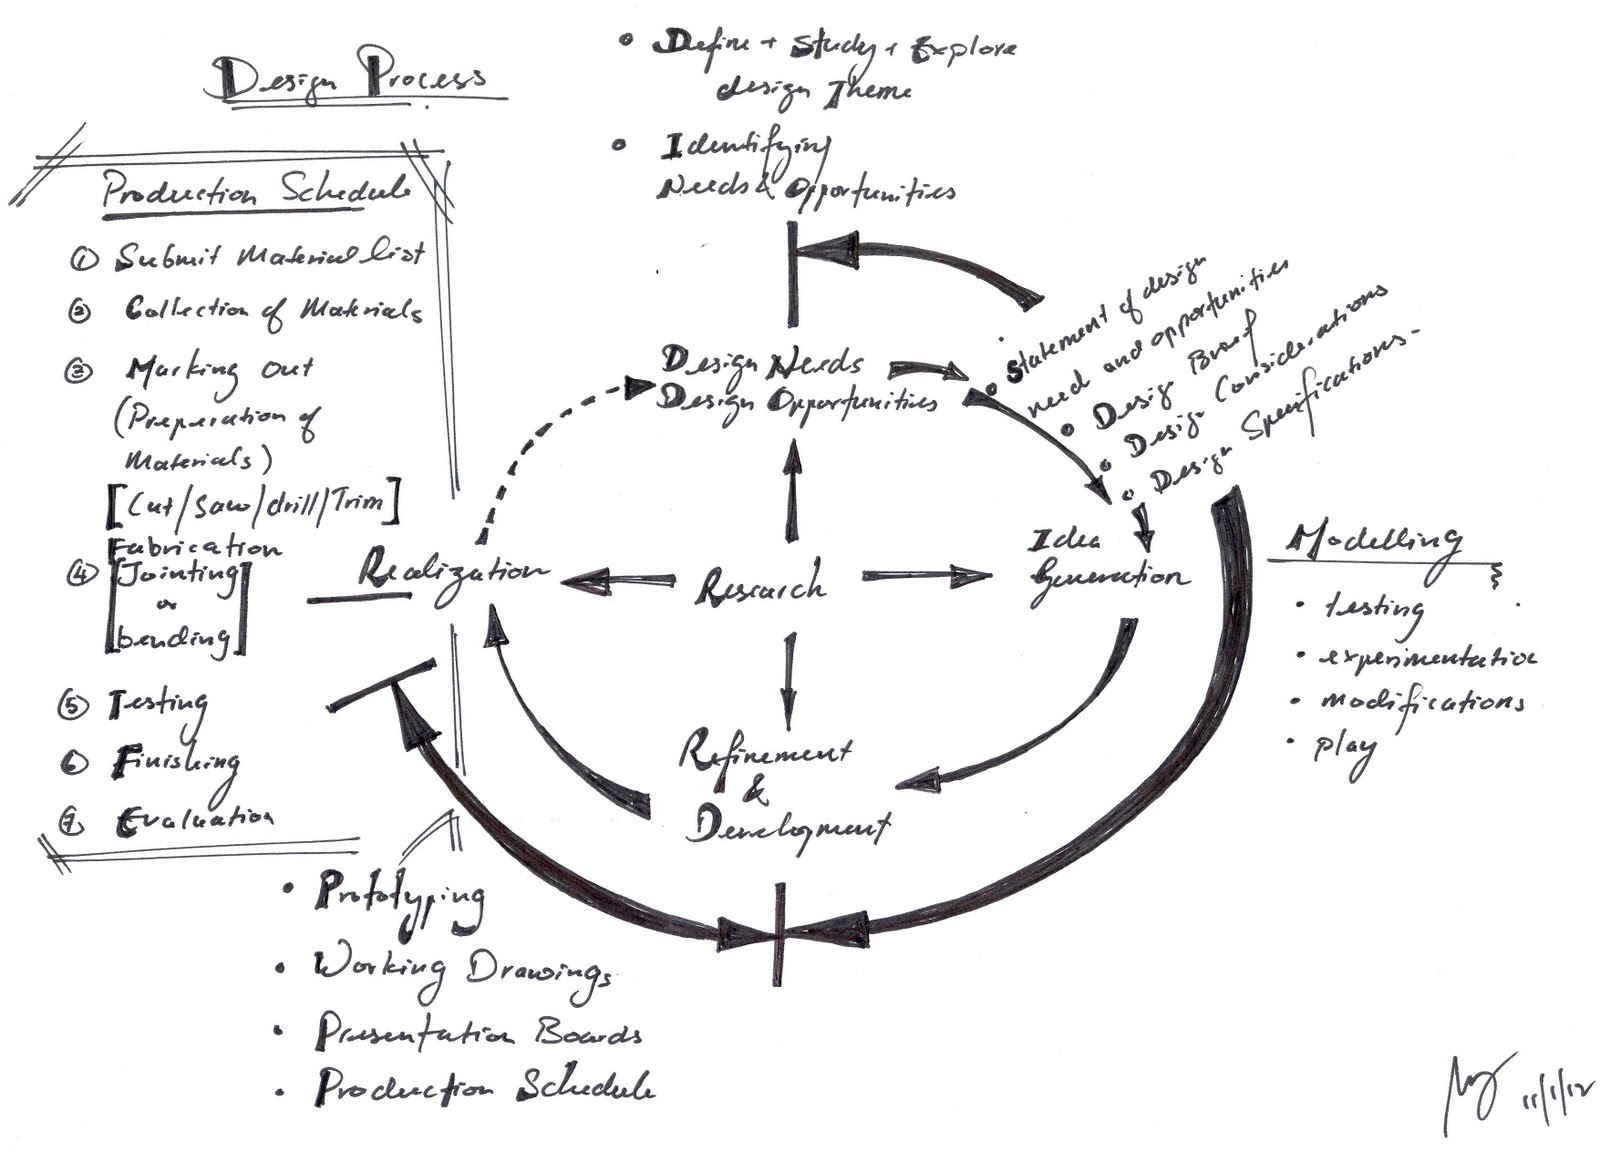 Design Process
Production Schedule
① Submit Material list
② Collection of Materials
③ Marking out
(Preperation of
Materials)
[Cut/saw/drill/Trim]
Fabrication
④ [Jointing
or
bending]
⑤ Testing
⑥ Finishing
⑦ Evaluation
• Define + Study + Explore
design Theme
• Identifying
Needs & Opportunities
Design Needs
Design Opportunities
• Statement of design
need and opportunities
• Design Brief
• Design Considerations
• Design Specifications.
Idea
Generation
Research
Realization
Refinement
&
Development
Modelling
• testing
• experimentation
• modifications
• play
• Prototyping
• Working Drawings
• Presentation Boards
• Production Schedule
11/1/12